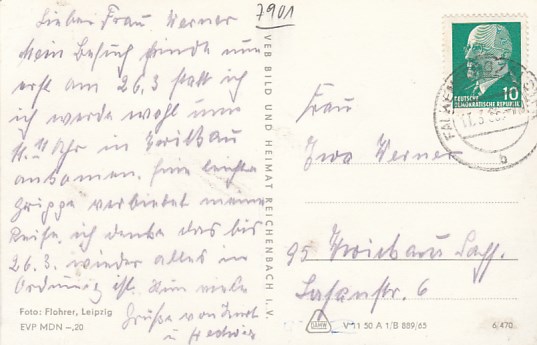 7901
Liebe Frau Werner
Mein Besuch findet nun
erst am 26.3 statt ich
ich werde wohl um
11.11 Uhr in Zwickau
ankomen. Eine leichte
Grippe verbietet meine
Reise, ich denke das bis
26.3. wieder alles in
Ordnung ist. Nun viele
Grüße von Kurt
u Hedwig
Foto: Flohrer, Leipzig
EVP MDN –,20
VEB BILD UND HEIMAT REICHENBACH I. V.
10
DEUTSCHE
DEMOKRATISCHE REPUBLIK
b
Frau
Werner
95 Zwickau Sachs.
6
V 11 50 A 1/B 889/65
6/470